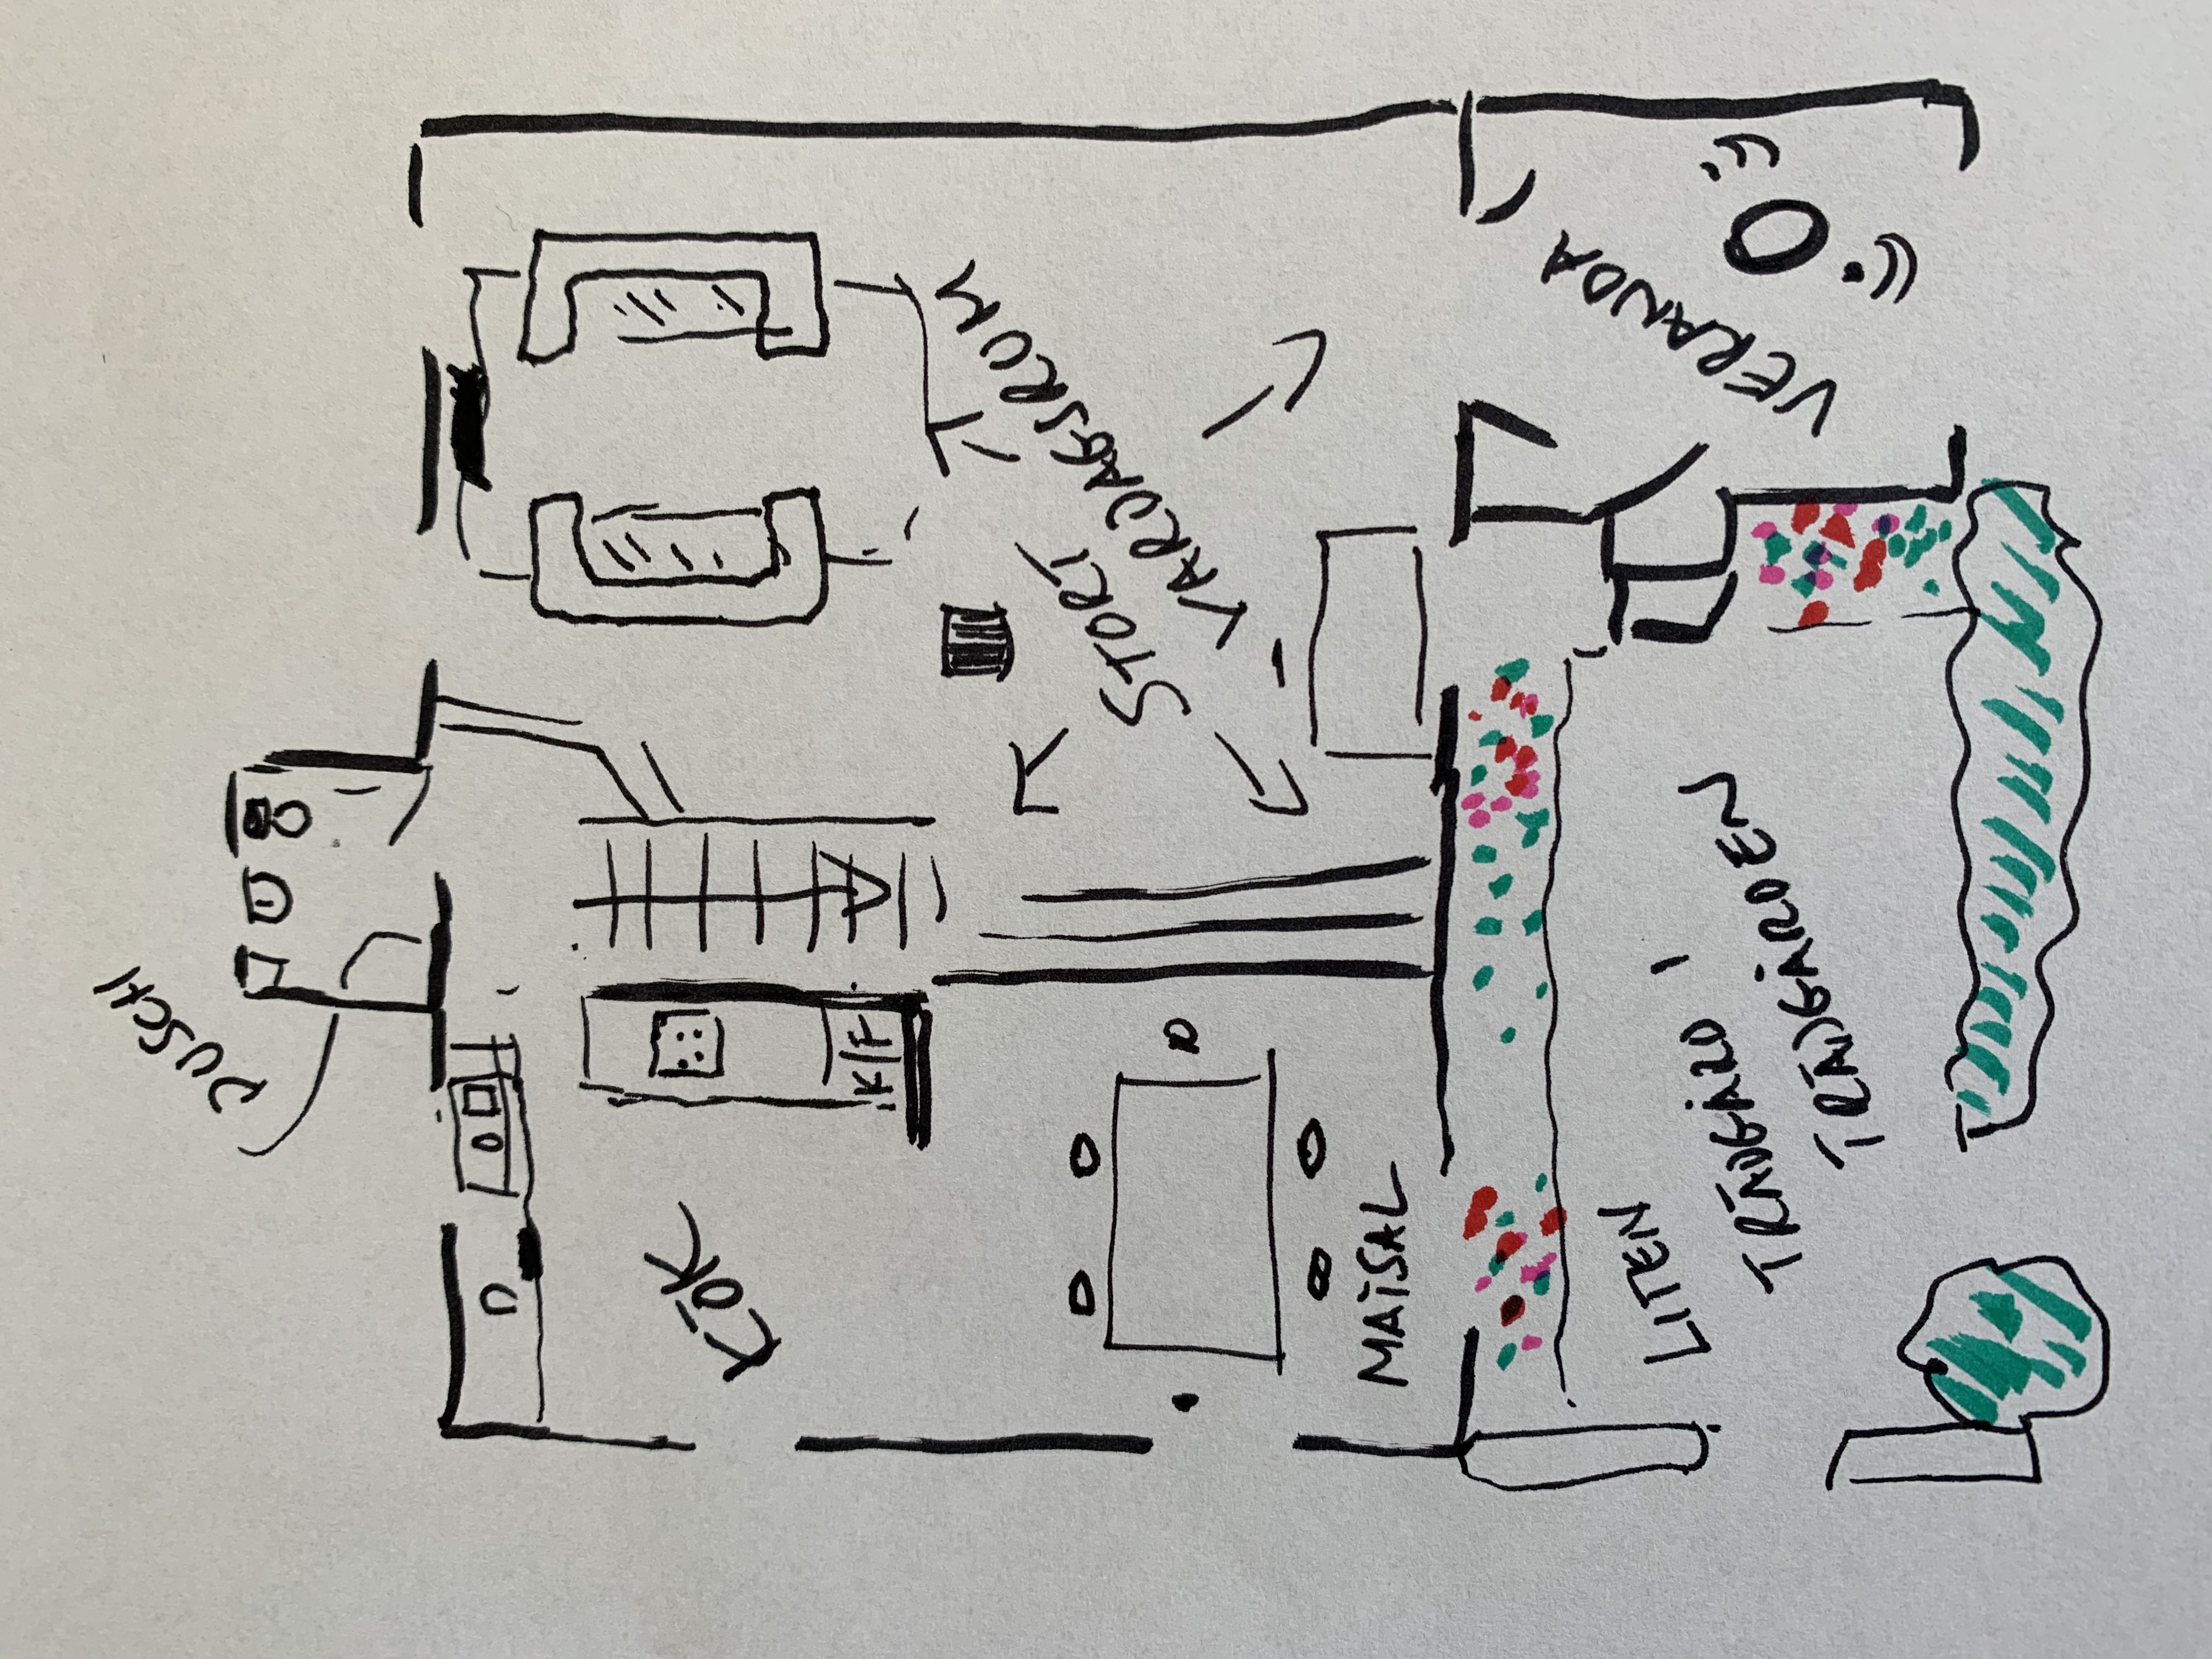 DUSCH
D
KÖK
K/F
STORT
VARDAGSRUM
MATSAL
LITEN
TRÄDGÅRD I
TRÄDGÅRDEN
VERANDA